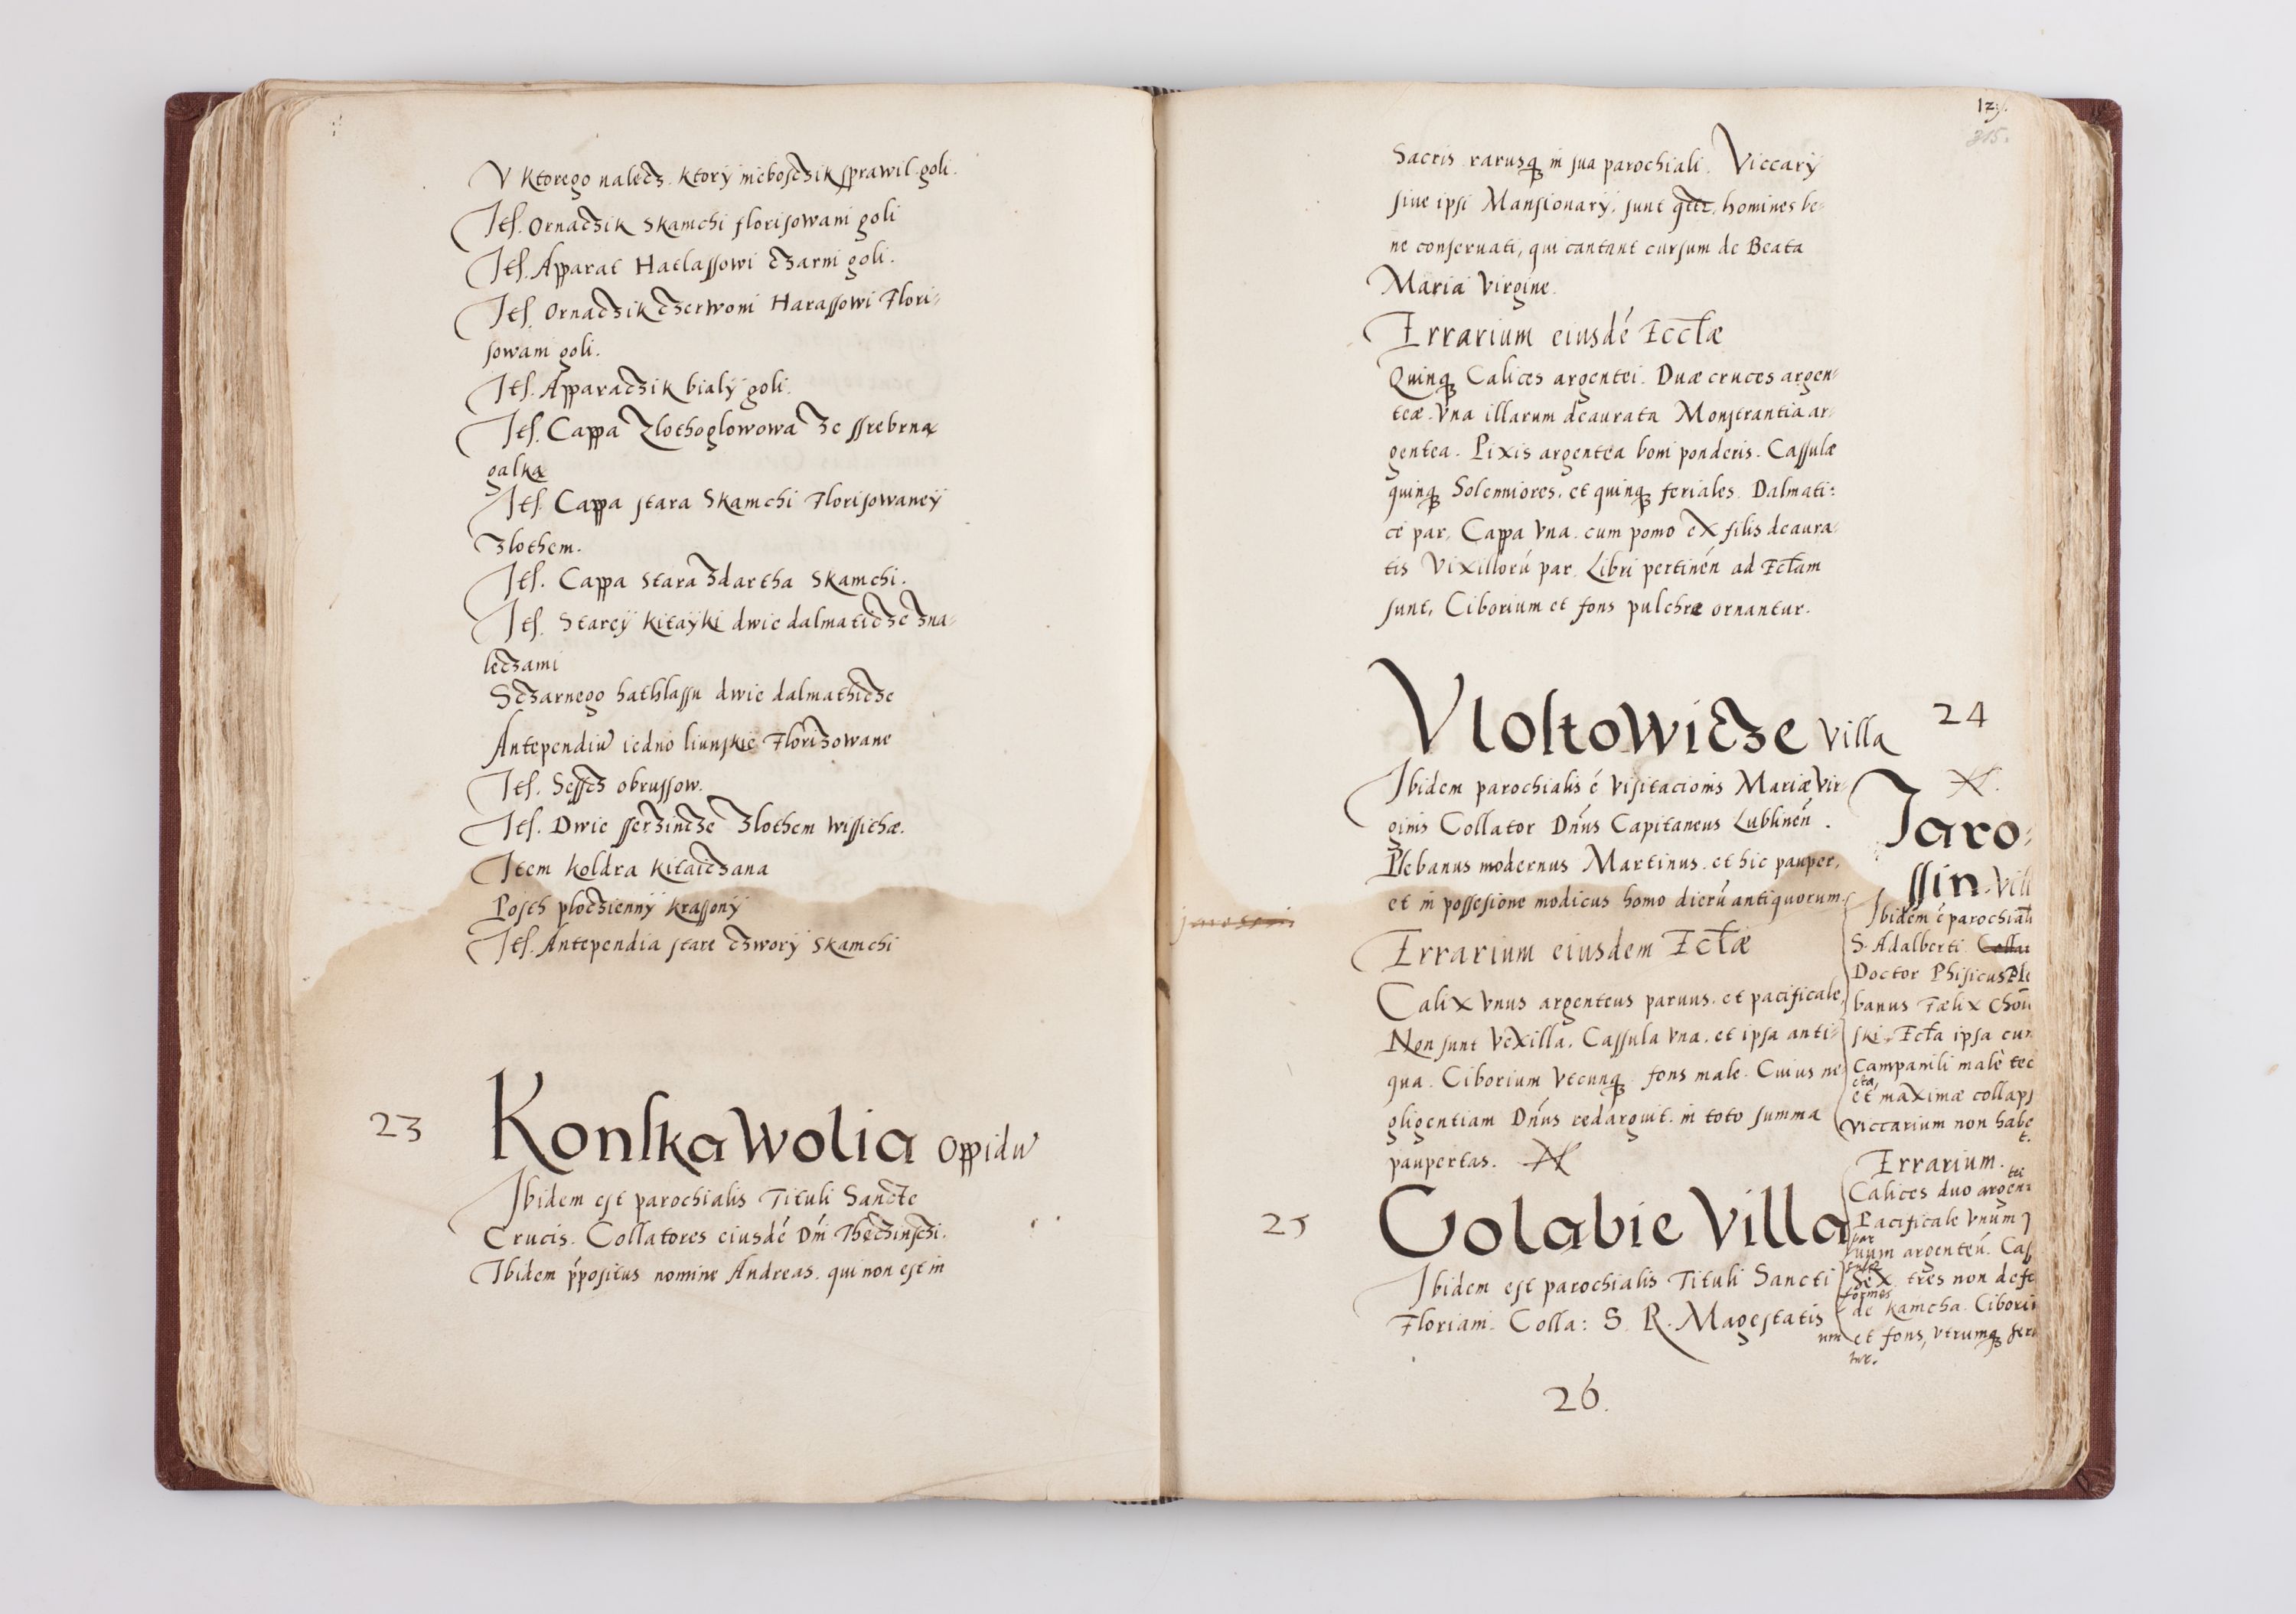 V ktorego nalecz. ktorÿ nieboscżik sprawil goli.
Its. Ornaczik skamchi florisowani goli
Its. Apparat Hatlassowi czarni goli.
Its. Ornaczik czerwoni Harassowi Flori-
sowani goli.
Its. Apparaczik bialÿ goli.
Its. Cappa Zlothoglowowa ze ssrebrną
galką
Its. Cappa stara Skamchi Florisowaneÿ
zlothem.
Its. Cappa stara zdartha Skamchi.
Its. Stareÿ kitaÿki dwie dalmaticze zna-
leczami
Sczarnego hathlassu dwie dalmathicze
Antependiu iedno liunskie Florizowane
Its. Sesscz obrussow.
Its. Dwie sserzincze Zlothem wissithæ.
Item koldra kitaiczana
Posth plocziennÿ krassonÿ
Its. Antependia stare czworÿ Skamchi
23
Konska Wolia Oppidu
Ibidem est parochialis Tituli Sancte
Crucis. Collatores eiusdé Dní Theczinsczi.
Ibidem ṕpositus nomine Andreas. qui non est in
129.
315.
Sacris rarusq in sua parochiali. Viccarÿ
siue ipsi Mansionarÿ, sunt homines be-
ne conseruati, qui cantant cursum de Beata
Maria Virgine.
Errarium eiusdé Eccłæ
Quinq Calices argentei. Duæ cruces argen-
teæ. Vna illarum deaurata Monstrantia ar-
gentea. Pixis argentea boni ponderis. Cassulæ
quinq Solenniores. et quinq feriales. Dalmati:
ce par, Cappa Vna. cum pomo ex filis deaura-
tis Vixillorú par. Libri pertinén ad Ecłam
sunt, Ciborium et fons pulchre ornantur.
Vlostowicze Villa 24
Ibidem parochialis é Visitacionis Mariæ Vir-
ginis Collator Dńus Capitaneus Lublinén.
Plebanus modernus Martinus. et hic pauper.
et in possesione modicus homo dierú antiquorum.
Errarium eiusdem Ecłæ
Calix Vnus argenteus paruus. et pacificale,
Non sunt Vexilla. Cassula Vna. et ipsa anti-
qua. Ciborium Vtcunq fons male. Cuius ne
gligentiam Dńus redarguit. in toto summa
paupertas.
Jaro-
ssin. Vill
Ibidem é parochiali
S. Adalberti. Collat
Doctor Phisicus Ple
banus Fælix Chon
ski. Ecła ipsa cum
Campanili malè tec
cta,
et maximæ collaps
Viccarium non habe
t.
Errarium.
tei
Calices duo argen-
Pacificale Vnum
par
uum argenteú. Cas
sulæ
Sex. tres non defe
formes
de kamcha. Cibori
um et fons, Vtrumq
tur.
25
Golabie Villa
Ibidem est parochialis Tituli Sancti
Floriani. Colla: S. R. Magestatis
26.